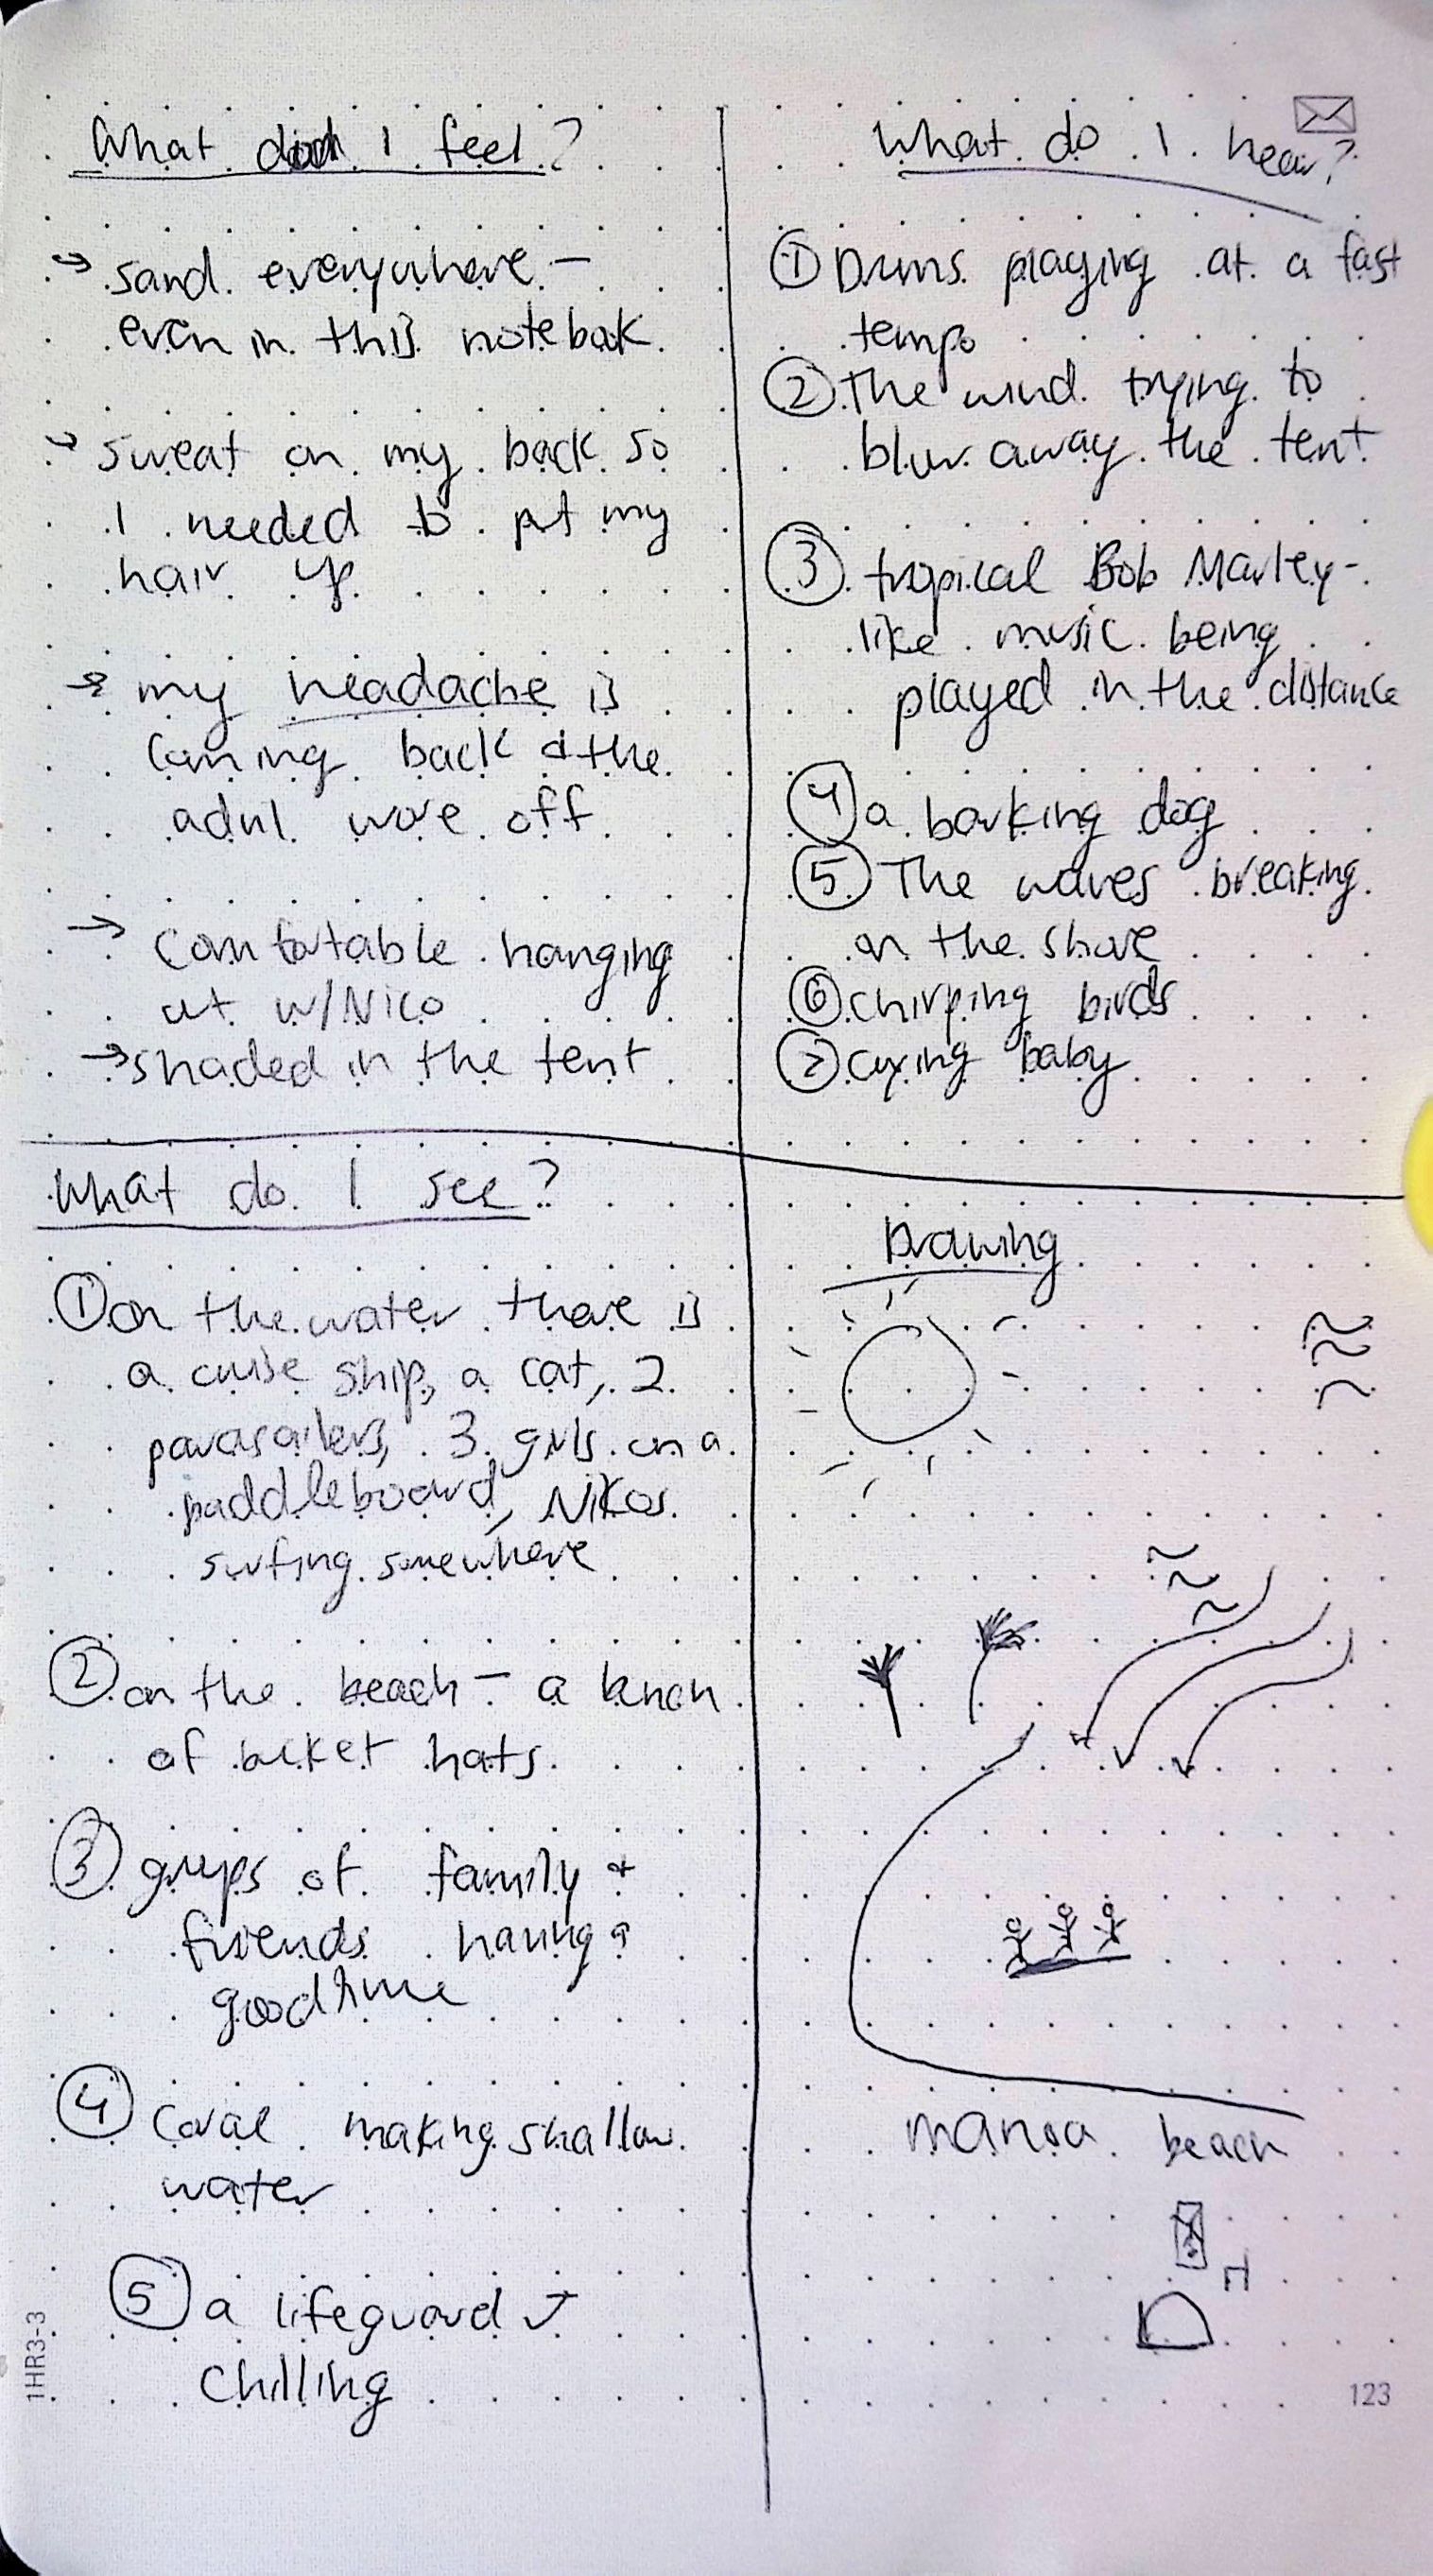 What do I feel?
→ sand everywhere -
even in this notebook
→ sweat on my back so
I needed to put my
hair up
→ my headache is
coming back & the
advil wore off
→ comfortable hanging
out w/Nico
→ shaded in the tent
What do I hear?
① Drums playing at a fast
tempo
② The wind trying to
blow away the tent
③ tropical Bob Marley-
like music being
played in the distance
④ a barking dog
⑤ The waves breaking
on the shore
⑥ chirping birds
⑦ crying baby
What do I see?
① on the water there is
a cruise ship, a cat, 2
parasailers, 3 girls on a
paddleboard, Nikos
surfing somewhere
② on the beach - a bunch
of bucket hats
③ groups of family +
friends having a
good time
④ coral making shallow
water
⑤ a lifeguard
chilling
Drawing
beach
1HR3-3
123